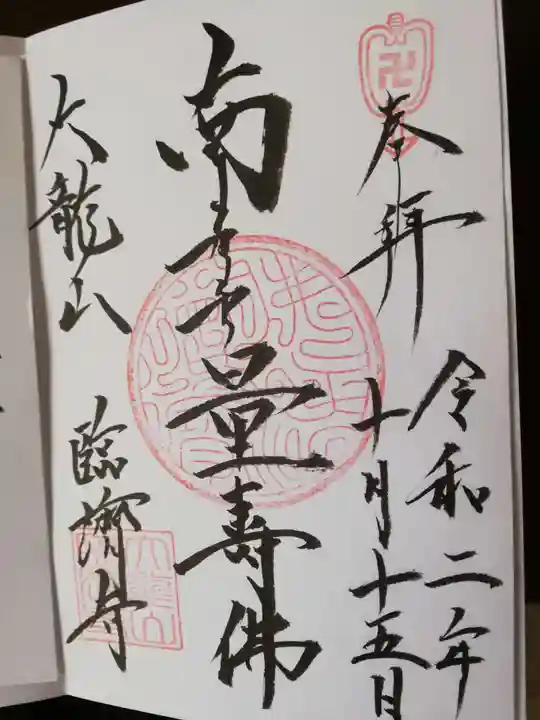 奉拝
令和二年
十月十五日
南無量壽佛
大龍山 臨濟寺